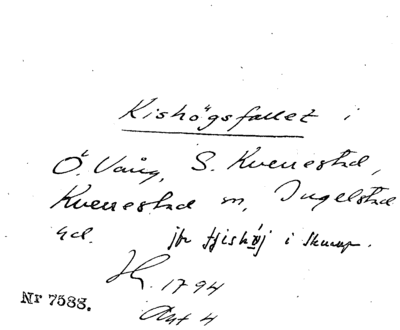 Kishögsfallet i
Ö. Vång, S. Kverrestad,
Kverrestad sn, Ingelstad
hd. jfr fjishöj i Skurup.
Sk. 1794
Akt 4
Nr 7588.